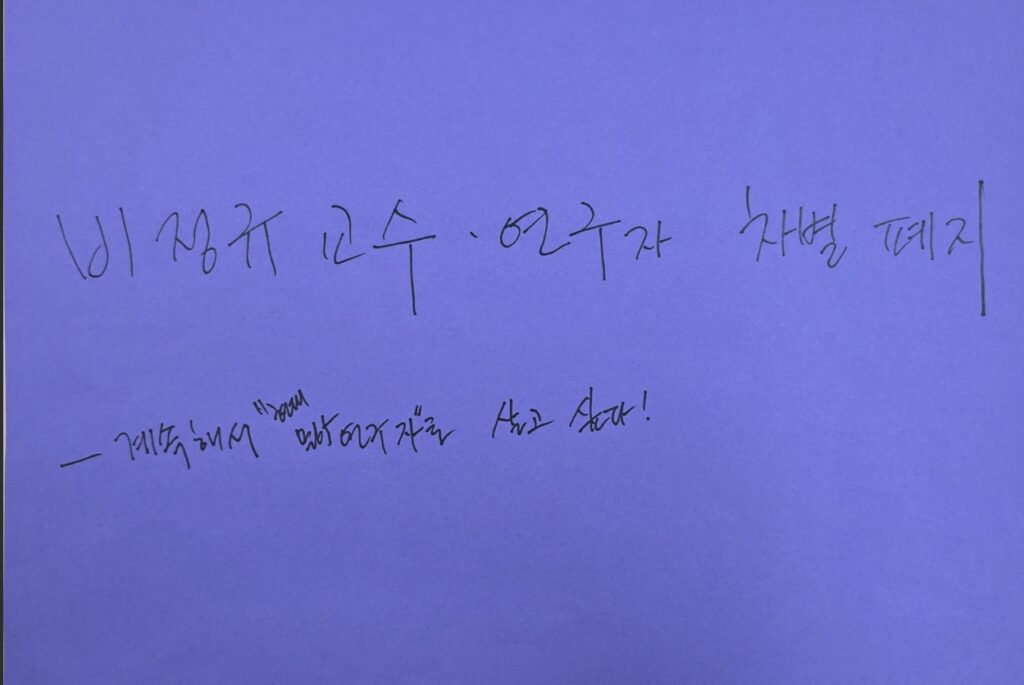 비정규 교수 · 연구자 차별 폐지
— 계속해서 "현대 문학 연구자"로 살고 싶다!